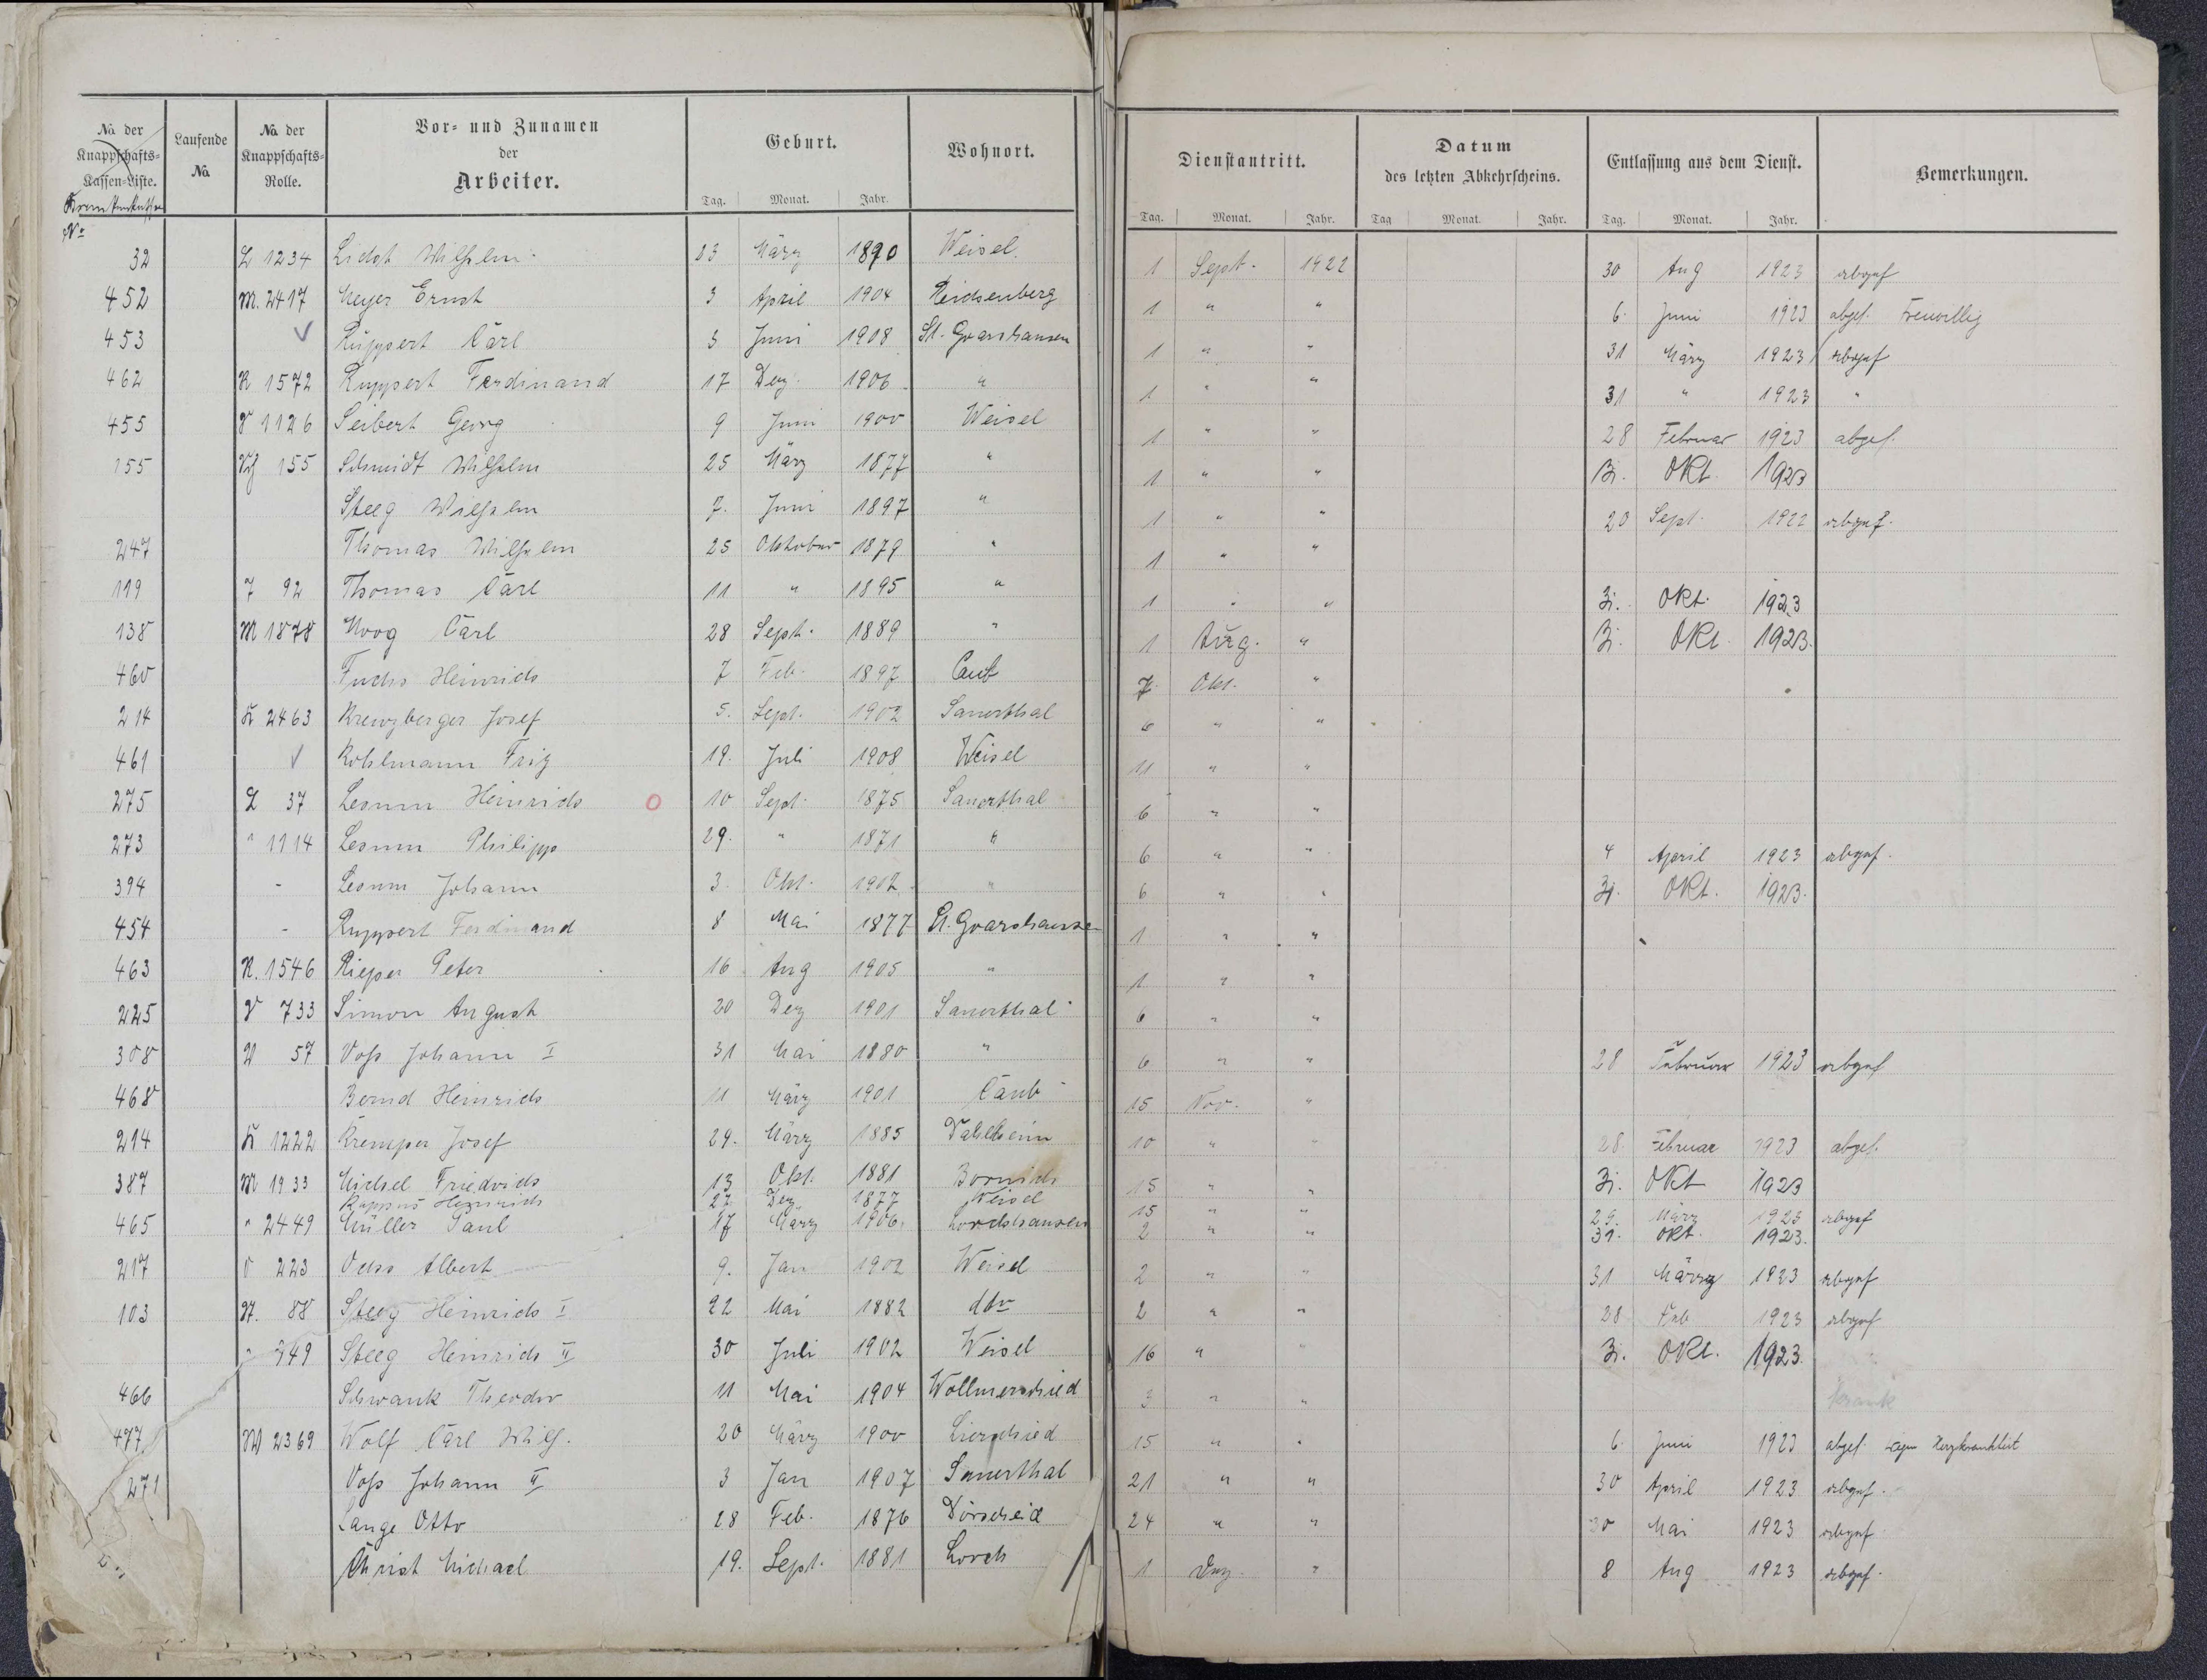 No. der Knappschafts-Kassen-Liste. Laufende No. No. der Knappschafts-Rolle. Vor- und Zunamen der Arbeiter. Geburt. Wohnort. Dienstantritt. Datum des letzten Abkehrscheins. Entlassung aus dem Dienst. Bemerkungen.
No
Tag. Monat. Jahr. Tag. Monat. Jahr. Tag Monat. Jahr. Tag. Monat. Jahr.
32 L 1234 Wilhelm 1890 Weisel. 1 Sept. 1922 30 Aug 1923 abgef
452 M. 2417 Meyer Ernst 3 April 1904 1 " " 6. Juni 1923 abgef. Freiwillig
453 ✓ Ruppert Carl 5 Juni 1908 St. Goarshausen 1 " " 31 März 1923 abgef
462 R 1572 Ruppert Ferdinand 17 Dez. 1906 " 1 " " 31 " 1923 "
455 1126 Seibert Georg 9 Juni 1900 Weisel 1 " " 28 Februar 1923 abgef.
155 155 Schmidt Wilhelm 25 März 1877 " 1 " " 31. Okt. 1923
Steeg Wilhelm 7. Juni 1897 " 1 " " 20 Sept. 1922 abgef.
247 Thomas Wilhelm 25 Oktober 1879 " 1 " "
119 92 Thomas Carl 11 " 1895 " 1 " " 31. Okt. 1923
138 M 1878 Moog Carl 28 Sept. 1889 " 1 Aug. " 31. Okt. 1923.
460 Fuchs Heinrich 7 Feb. 1897 Caub 7. Okt. "
214 K 2463 Kreuzberger Josef 5. Sept. 1902 Sauerthal 6 " "
461 ✓ Kohlmann Fritz 19. Juli 1908 Weisel 11 " "
275 L 37 Heinrich O 10 Sept. 1875 Sauerthal 6 " "
273 " 1114 Philipp 29. " 1871 " 6 " " 4 April 1923 abgef.
394 - Johann 3. Okt. 1902 " 6 " " 31. Okt. 1923.
454 - Ruppert Ferdinand 8 Mai 1877 St. Goarshausen 1 " "
463 R. 1546 Peter 16 Aug 1905 " 1 " "
225 733 Simon August 20 Dez 1901 Sauerthal 6 " "
308 57 Voss Johann I 31 Mai 1880 " 6 " " 28 Februar 1923 abgef
468 Heinrich 11 März 1901 Caub 15 Nov. "
214 K 1222 Kremper Josef 29. März 1885 Dahlheim 10 " " 28. Februar 1923 abgef.
387 M 1933 Michel Friedrich 13 Okt. 1881 Bornich 15 " " 31. Okt 1923
Rappus Heinrich 27 Dez 1877 Weisel 15 " " 29. März 1923 abgef
465 " 2449 Müller Paul 17 März 1906. 2 " " 31. Okt. 1923.
217 O 223 Ochs Albert 9. Jan 1902 Weisel 2 " " 31 März 1923 abgef
103 St. 88 Steeg Heinrich I 22 Mai 1882 dto 2 " " 28 Feb 1923 abgef
" 949 Steeg Heinrich II 30 Juli 1902 Weisel 16 " " 31. Okt. 1923.
466 Schwank Theodor 11 Mai 1904 Wollmerschied 3 " " krank
477 W 2369 Wolf Carl Wilh. 20 März 1900 Lierschied 15 " " 6. Juni 1923 abgef. wegen Herzkrankheit
271 Voss Johann II 3 Jan 1907 Sauerthal 21 " " 30 April 1923 abgef.
Lange Otto 28 Feb. 1876 Dörscheid 24 " " 30 Mai 1923 abgef
Christ Michael 19. Sept. 1881 Lorch 1 Dez. " 8 Aug 1923 abgef.